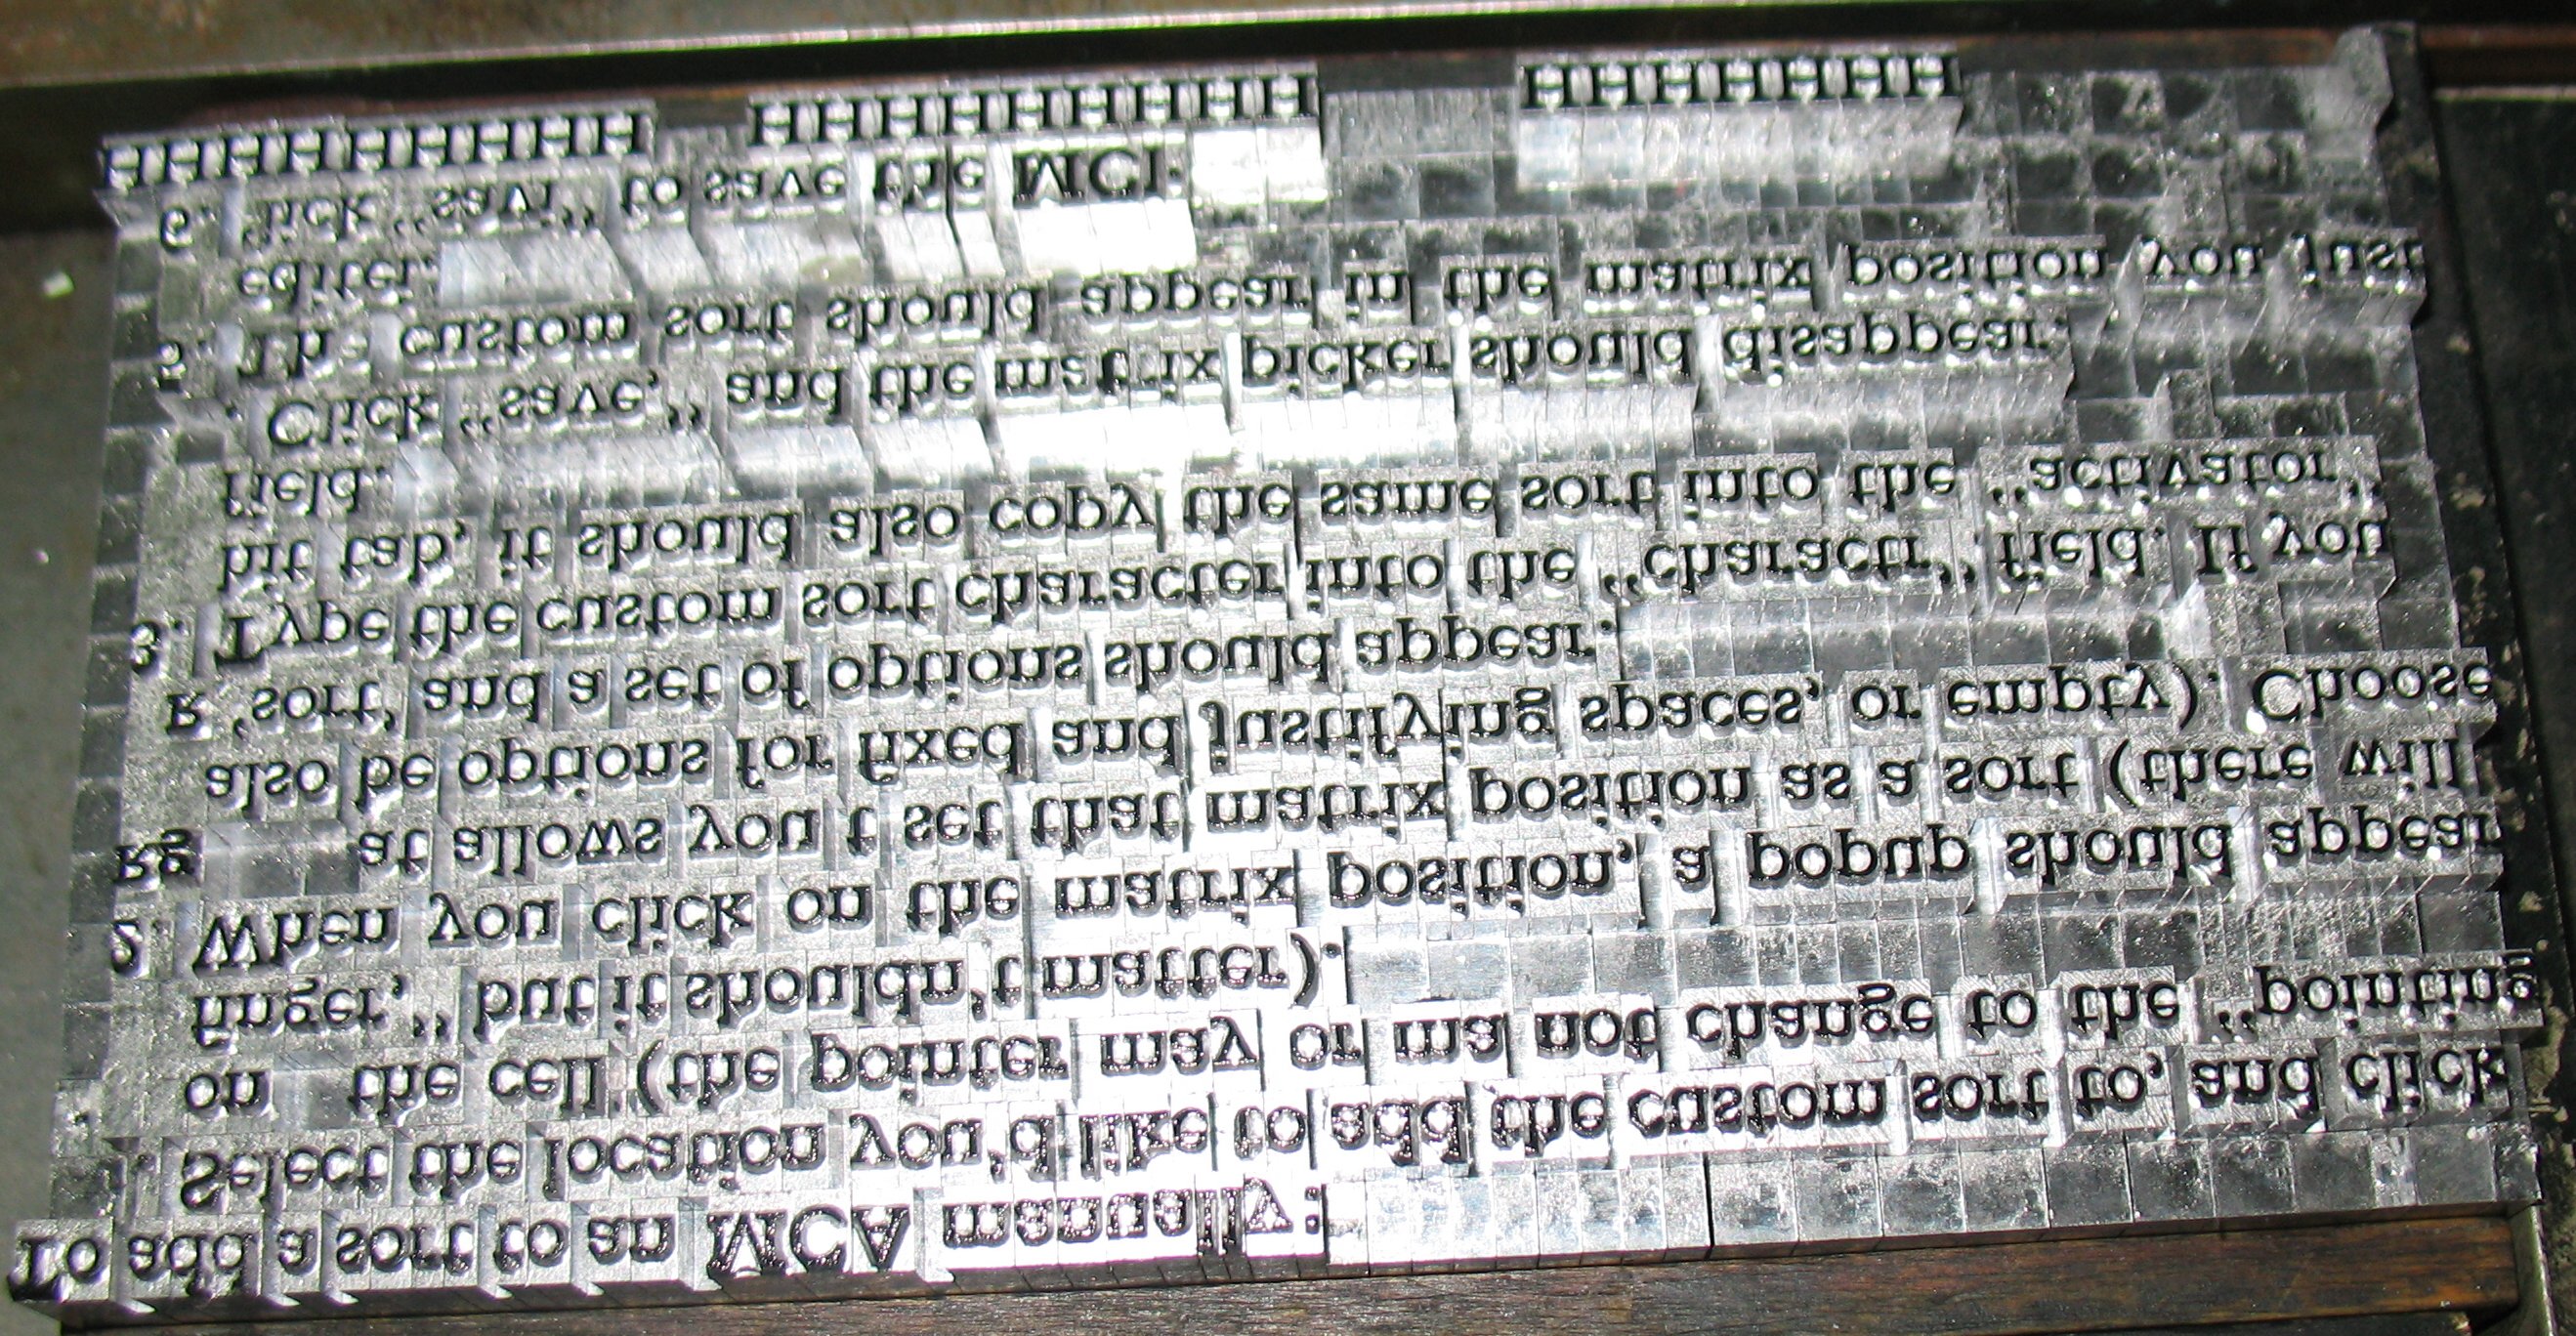 To add a sort to an MCA manually:
1. Select the location you'd like to add the custom sort to, and click
on the cell (the pointer may or ma not change to the “pointing
finger,” but it shouldn't matter).
2. When you click on the matrix position, a popup should appear
Rg at allows you t set that matrix position as a sort (there will
also be options for fixed and justifying spaces, or empty). Choose
R ‘sort’ and a set of options should appear.
3. Type the custom sort character into the “charactr” field. If you
hit tab, it should also copy the same sort into the “activator”
field.
Click “save,” and the matrix picker should disappear.
5. custom sort should appear in the matrix position you just
6. to save the
HHHHHHHHH HHHHHHHHH HHHHHHH